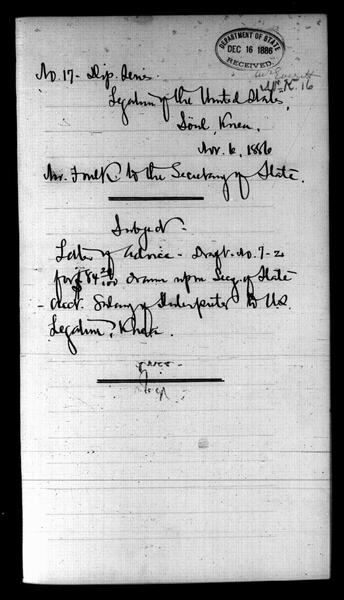 DEPARTMENT OF STATE
DEC 16 1886
RECEIVED.
No. 17 - Dip. Series
Mr. K. 16
Legation of the United States,
Söul, Korea,
Nov. 6, 1886
Mr. Foulk to the Secretary of State.
Subject -
Letter of Advice - Draft. No. 7 - 2
for $84 /100 drawn upon Secy. of State
- acct. Salary of Interpreter to U.S.
Legation, Korea.